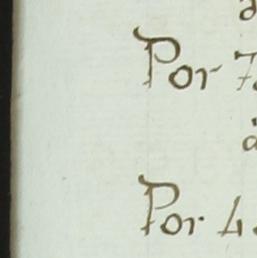 Por 7
Por 4